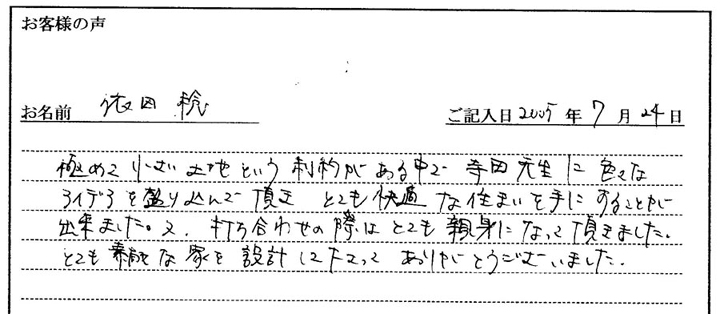 お客様の声
お名前 依田 稔 ご記入日 2005 年 7 月 24 日
極めて小さい土地という制約がある中で 寺田先生に色々な
アイデアを盛り込んで頂き とても快適な住まいを手にすることが
出来ました。又、打ち合わせの際はとても親身になって頂きました。
とても素敵な家を設計して下さって ありがとうございました。